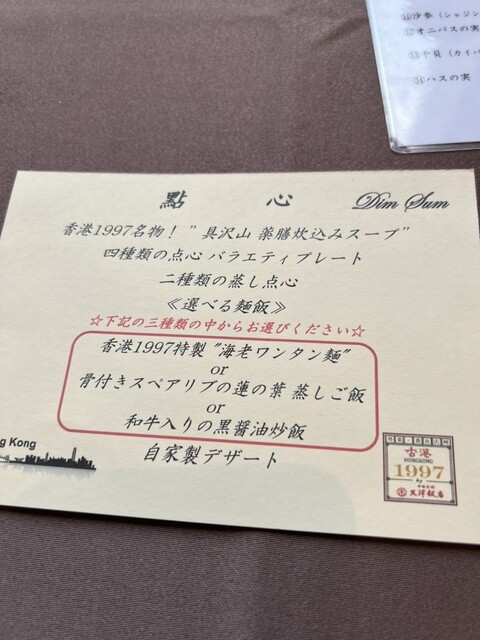 ⑪沙参（シャジン
⑫オニバスの実
⑬干貝（カイバ
⑭ハスの実
點心 Dim Sum
香港1997名物！"具沢山 薬膳炊込みスープ"
四種類の点心 バラエティプレート
二種類の蒸し点心
≪選べる麺飯≫
☆下記の三種類の中からお選びください☆
香港1997特製"海老ワンタン麺"
or
骨付きスペアリブの蓮の葉 蒸しご飯
or
和牛入りの黒醤油炒飯
自家製デザート
ng Kong
香港
HONGKONG
1997
by
天津飯店